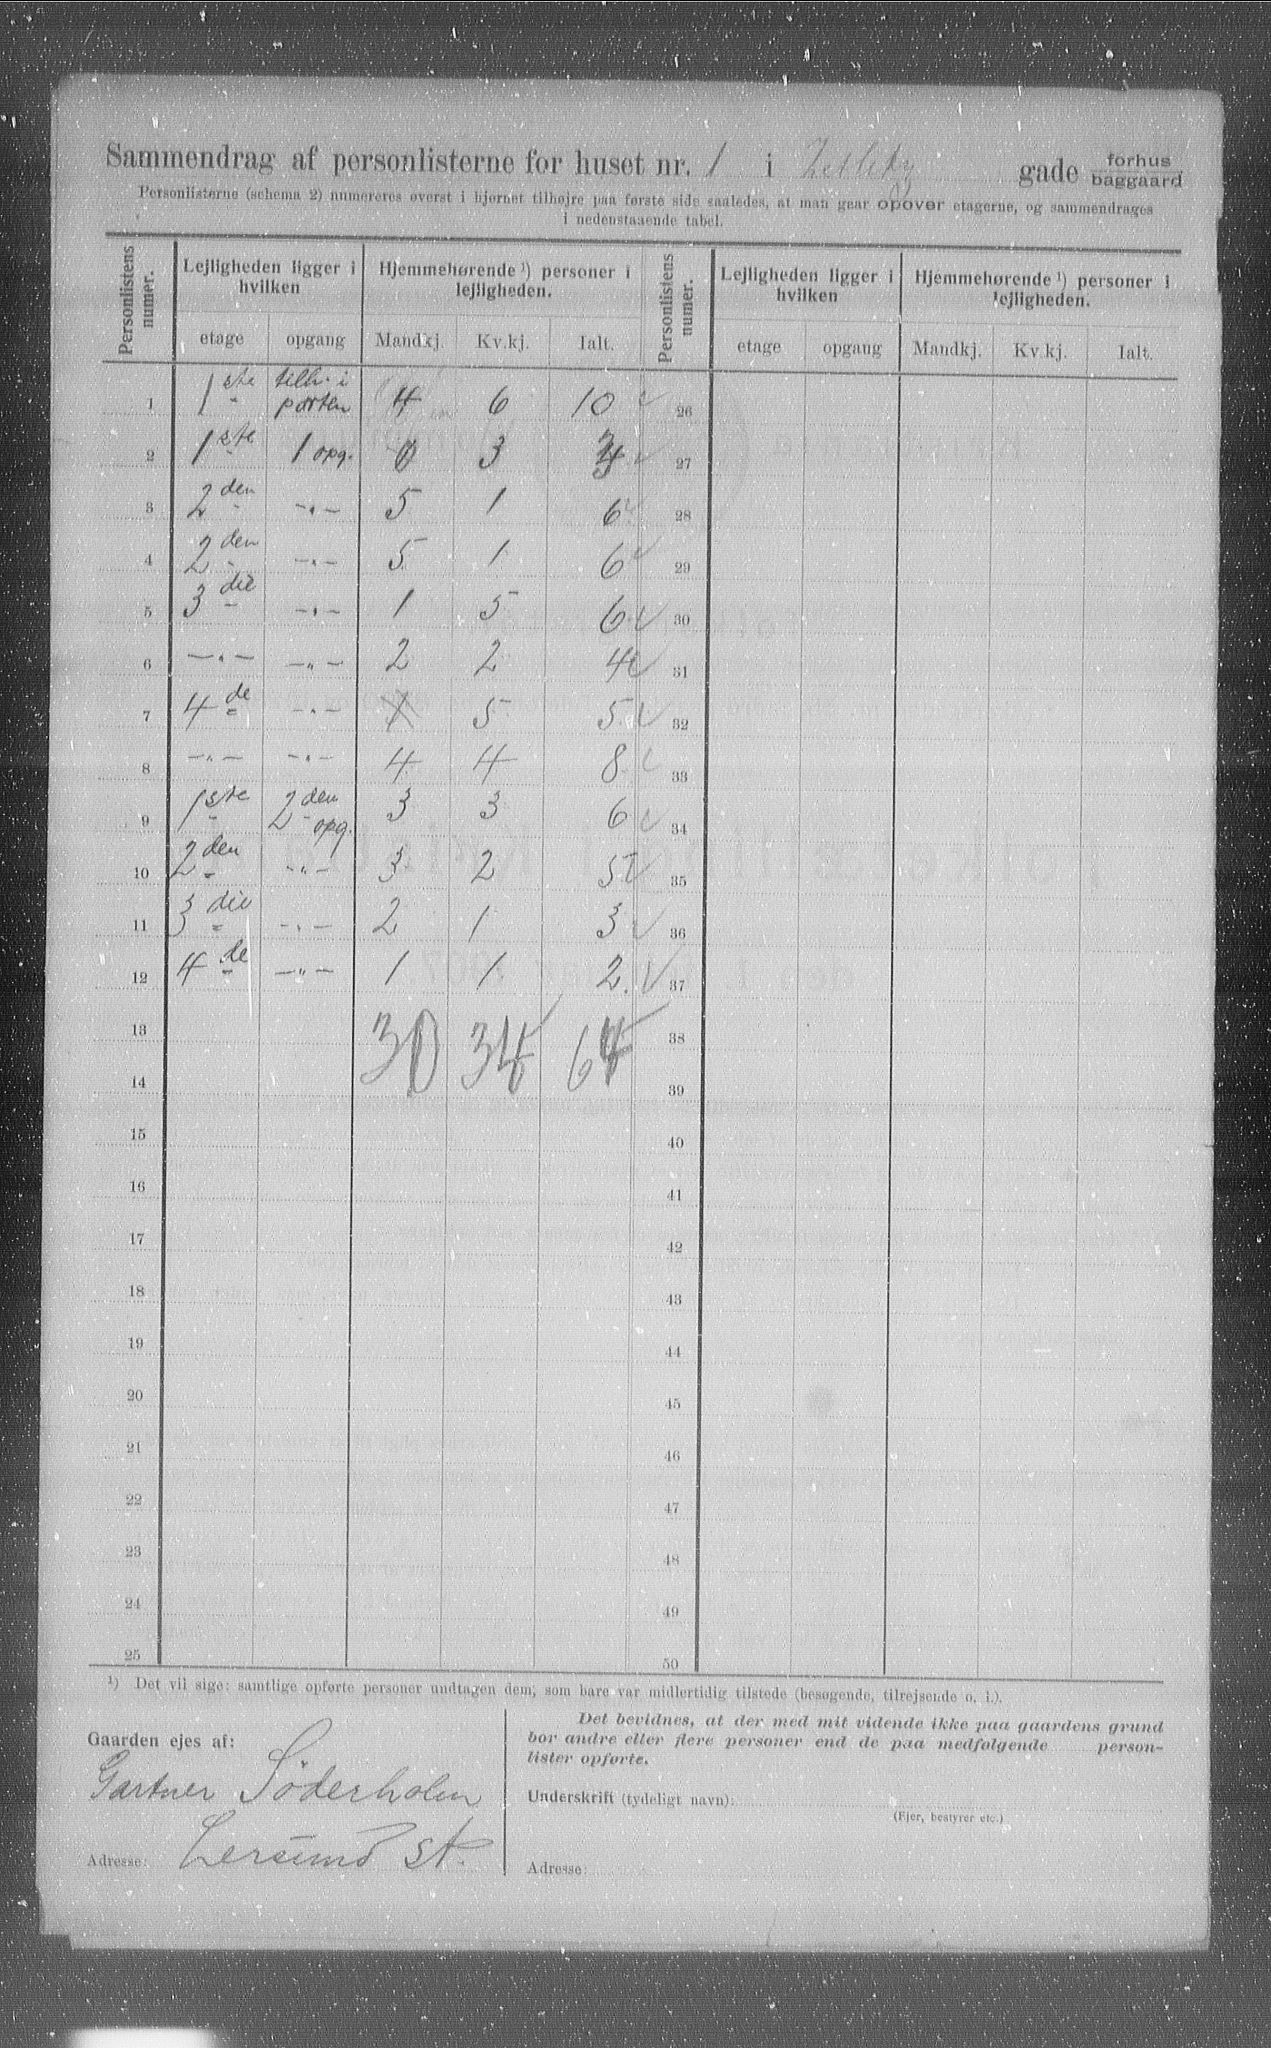 Sammendrag af personlisterne for huset nr. 1 i gade forhus baggaard
Personlisterne (schema 2) numereres øverst i hjørnet tilhøjre paa første side saaledes, at man gaar opover etagerne, og sammendrages
i nedenstaaende tabel.
Personlistens numer. Lejligheden ligger i hvilken Hjemmehørende ¹) personer i lejligheden. Personlistens numer. Lejligheden ligger i hvilken Hjemmehørende ¹) personer i lejligheden.
etage opgang Mandkj. Kv.kj. Ialt. etage opgang Mandkj. Kv.kj. Ialt.
1 1ste tilh. i porten 4 6 10 26
2 1ste 1 opg. 0 3 3 27
3 2den -"- 5 1 6 28
4 2den -"- 5 1 6 29
5 3die -"- 1 5 6 30
6 -"- -"- 2 2 4 31
7 4de -"- 5 5 32
8 -"- -"- 4 4 8 33
9 1ste 2den opg. 3 3 6 34
10 2den -"- 3 2 5 35
11 3die -"- 2 1 3 36
12 4de -"- 1 1 2 37
13 30 34 64 38
14 39
15 40
16 41
17 42
18 43
19 44
20 45
21 46
22 47
23 48
24 49
25 50
¹) Det vil sige: samtlige opførte personer undtagen dem, som bare var midlertidig tilstede (besøgende, tilrejsende o. l.).
Gaarden ejes af:
Gartner Söderholm
Adresse: Lersund st.
Det bevidnes, at der med mit vidende ikke paa gaardens grund
bor andre eller flere personer end de paa medfølgende person-
lister opførte.
Underskrift (tydeligt navn):
(Ejer, bestyrer etc.)
Adresse: